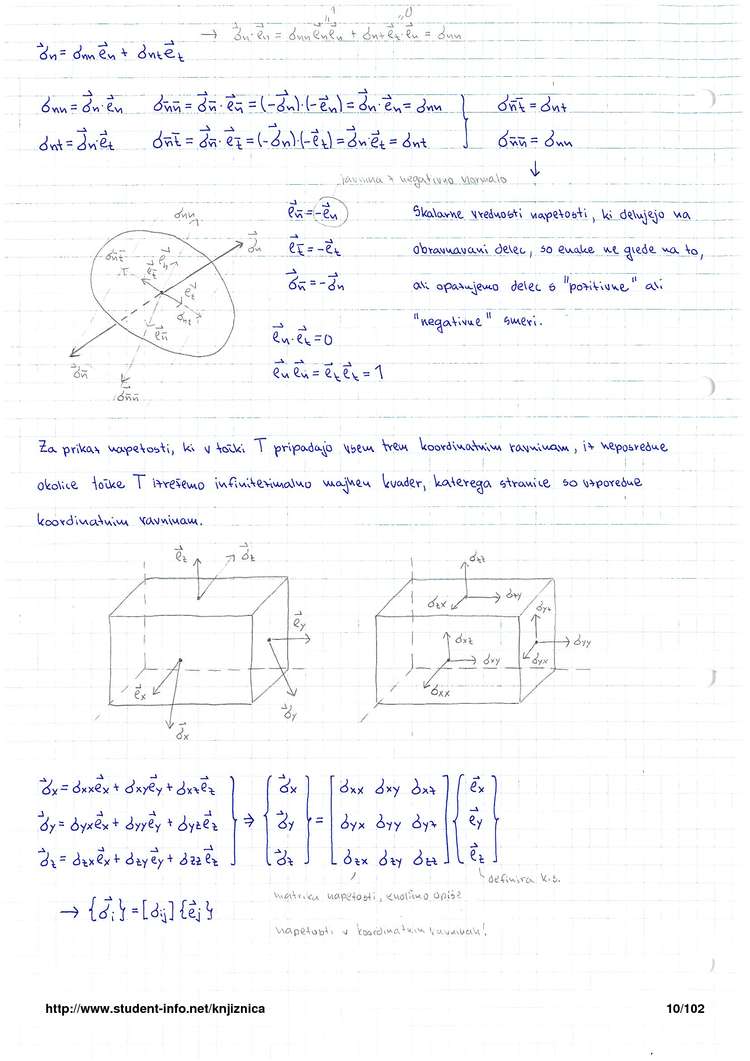 → σ⃗n·e⃗n = σnn e⃗n e⃗n + σnt e⃗t·e⃗n = σnn
"1 "0
σ⃗n = σnn e⃗n + σnt e⃗t
σnn = σ⃗n·e⃗n σn̄n̄ = σ⃗n̄·e⃗n̄ = (-σ⃗n)·(-e⃗n) = σ⃗n·e⃗n = σnn σn̄t̄ = σnt
σnt = σ⃗n·e⃗t σn̄t̄ = σ⃗n̄·e⃗t̄ = (-σ⃗n)·(-e⃗t) = σ⃗n·e⃗t = σnt σn̄n̄ = σnn
↓
ravnina z negativno normalo
e⃗n̄ = -e⃗n
e⃗t̄ = -e⃗t
σ⃗n̄ = -σ⃗n
e⃗n·e⃗t = 0
e⃗n e⃗n = e⃗t e⃗t = 1
Skalarne vrednosti napetosti, ki delujejo na
obravnavani delec, so enake ne glede na to,
ali opazujemo delec s "pozitivne" ali
"negativne" smeri.
σnn
σ⃗n
σn̄t̄
e⃗n
T
e⃗t̄
e⃗t
σnt
e⃗n̄
σ⃗n̄
σ⃗n̄n̄
Za prikaz napetosti, ki v točki T pripadajo vsem trem koordinatnim ravninam, iz neposredne
okolice točke T izrežemo infinitezimalno majhen kvader, katerega stranice so vzporedne
koordinatnim ravninam.
e⃗z σ⃗z
e⃗y
e⃗x
σ⃗y
σ⃗x
σzz
σzx σzy
σyz
σxz
σxy σyx σyy
σxx
σ⃗x = σxx e⃗x + σxy e⃗y + σxz e⃗z ⇒ {σ⃗x} = [σxx σxy σxz] {e⃗x}
σ⃗y = σyx e⃗x + σyy e⃗y + σyz e⃗z {σ⃗y} = [σyx σyy σyz] {e⃗y}
σ⃗z = σzx e⃗x + σzy e⃗y + σzz e⃗z {σ⃗z} [σzx σzy σzz] {e⃗z}
definira k.s.
matrika napetosti, enolično opiše
napetosti v koordinatnih ravninah!
→ {σ⃗i} = [σij] {e⃗j}
http://www.student-info.net/knjiznica 10/102